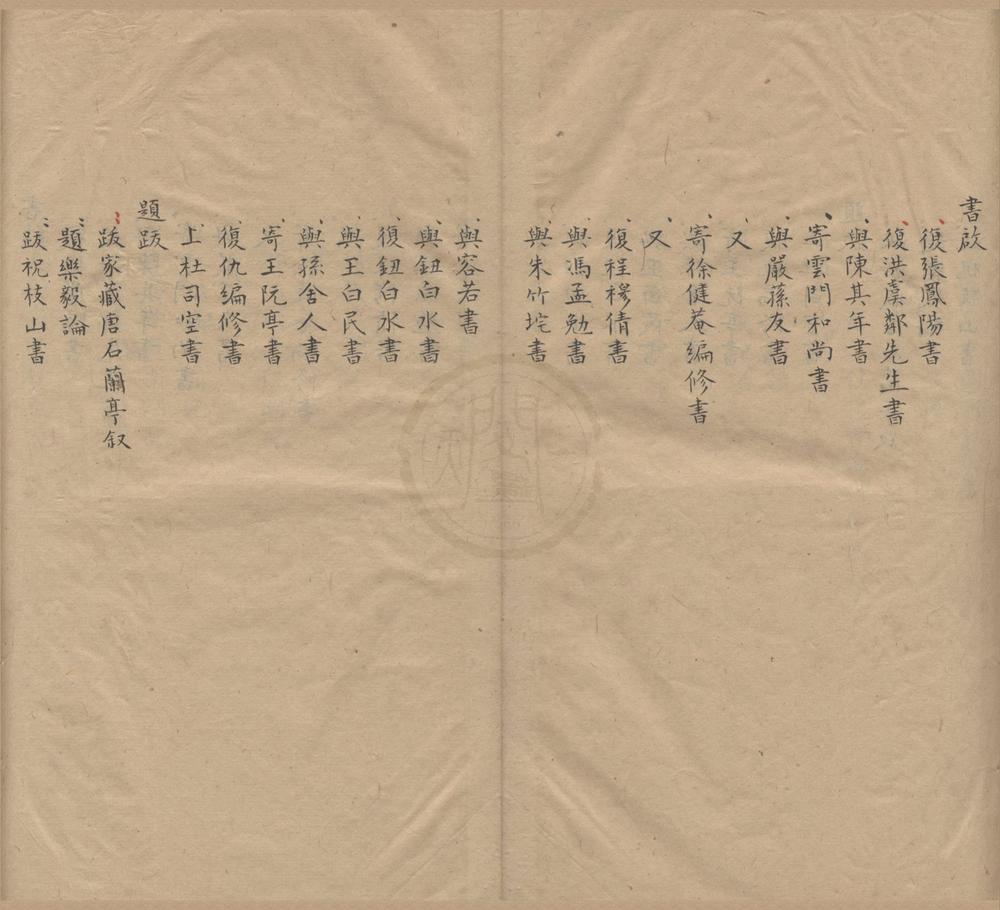 書啟
復張鳳陽書
復洪虞鄰先生書
與陳其年書
寄雲門和尚書
與嚴蓀友書
又
寄徐健菴編修書
又
復程穆倩書
與馮孟勉書
與朱竹垞書
與容若書
與鈕白水書
復鈕白水書
與王白民書
與孫舍人書
寄王阮亭書
復仇編修書
上杜司空書
題跋
跋家藏唐石蘭亭叙
題樂毅論
跋祝枝山書